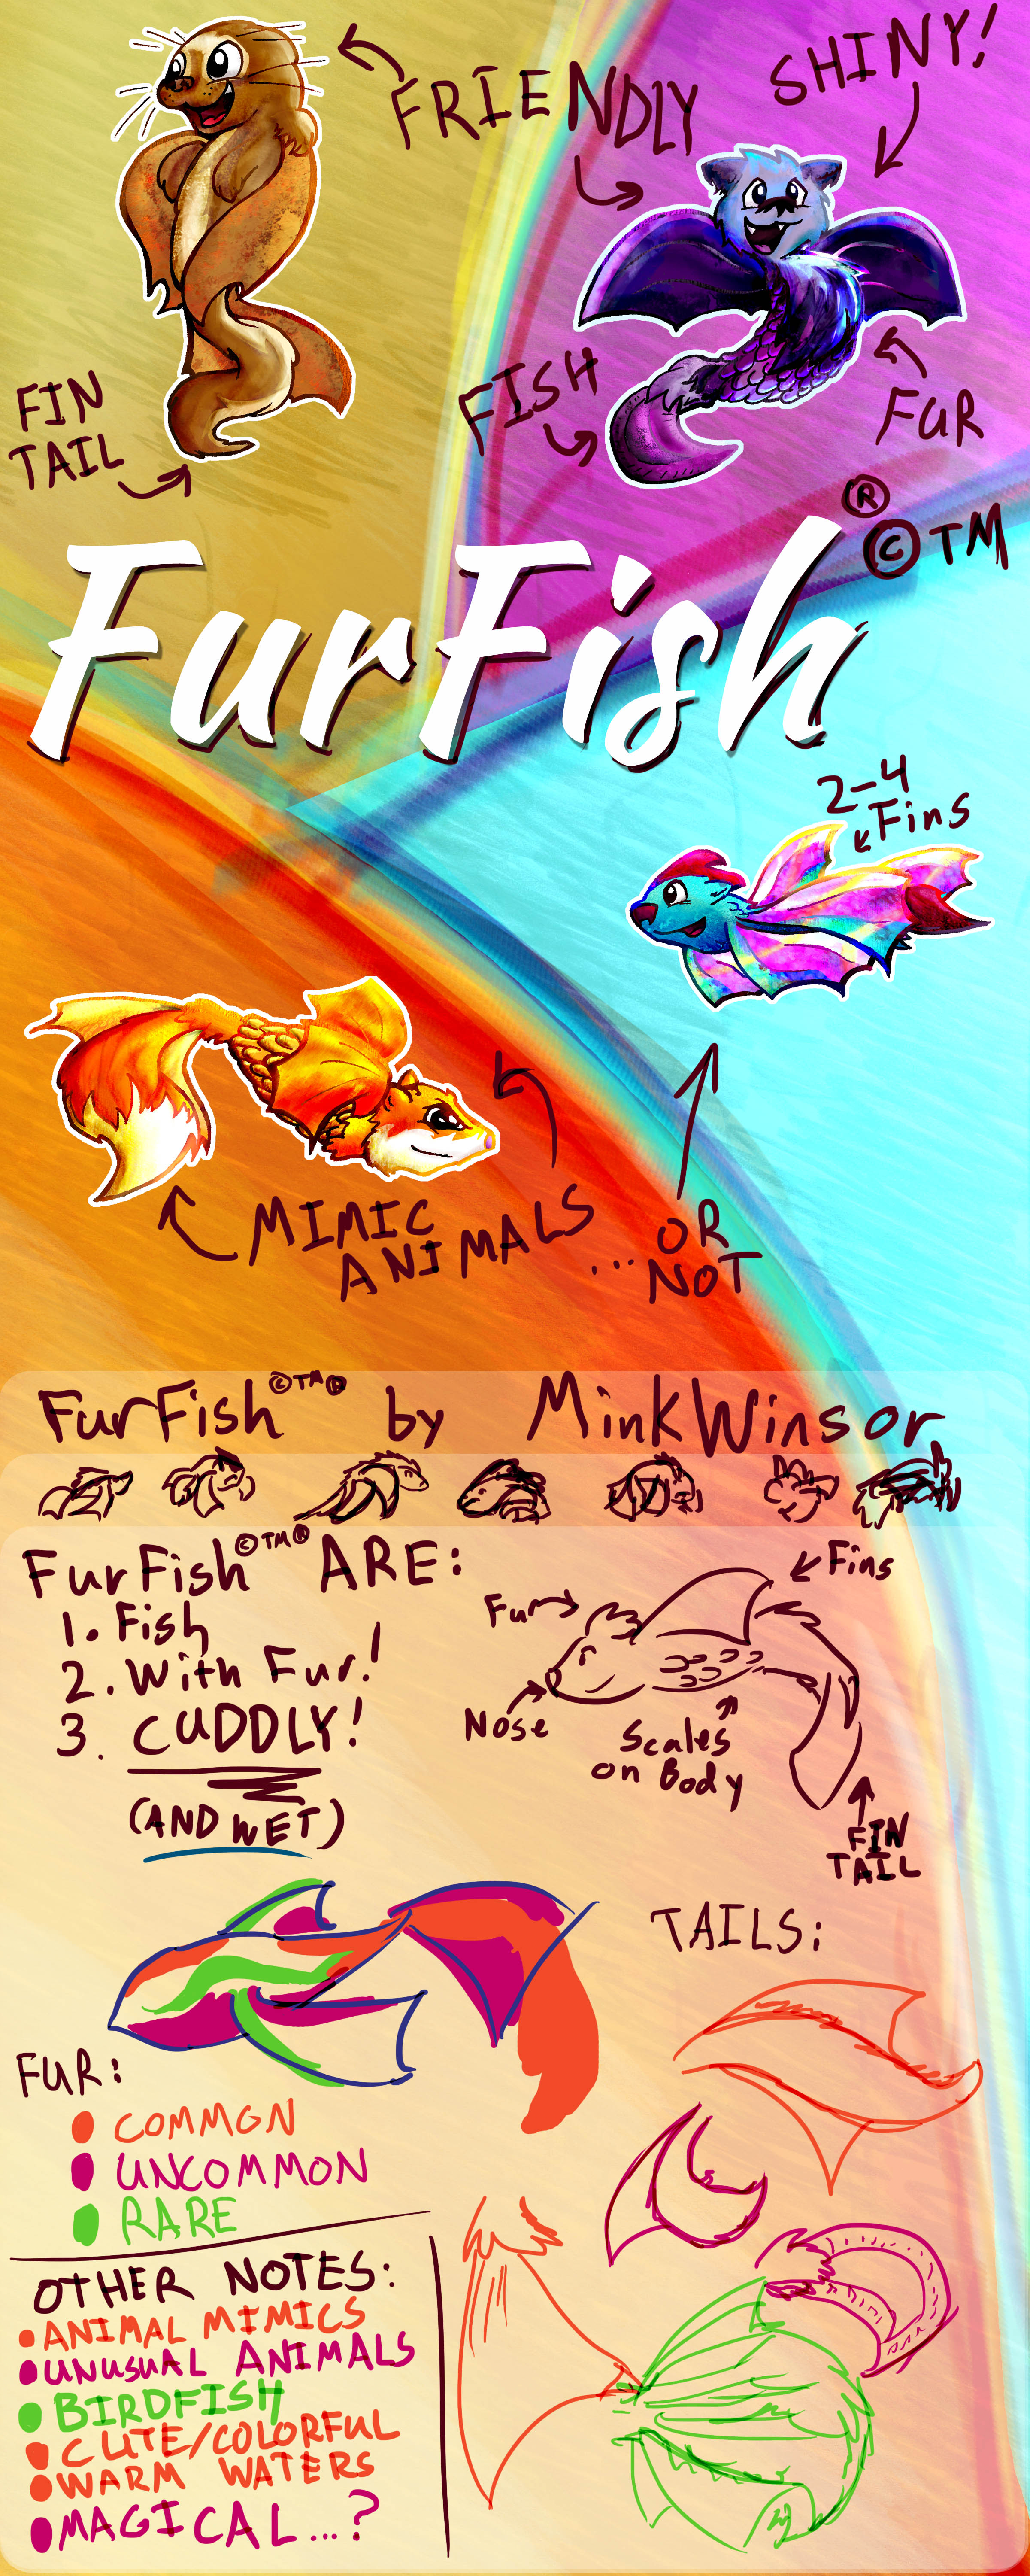 FRIENDLY
SHINY!
FIN
TAIL
FISH
FUR
® © TM
FurFish
2-4
Fins
MIMIC
ANIMALS
...OR
NOT
FurFish ©TM® by MinkWinsor
FurFish ©TM® ARE:
1. Fish
2. With Fur!
3. CUDDLY!
(AND WET)
Fins
Fur
Nose
Scales
on Body
FIN
TAIL
TAILS:
FUR:
COMMON
UNCOMMON
RARE
OTHER NOTES:
ANIMAL MIMICS
UNUSUAL ANIMALS
BIRDFISH
CUTE/COLORFUL
WARM WATERS
MAGICAL...?